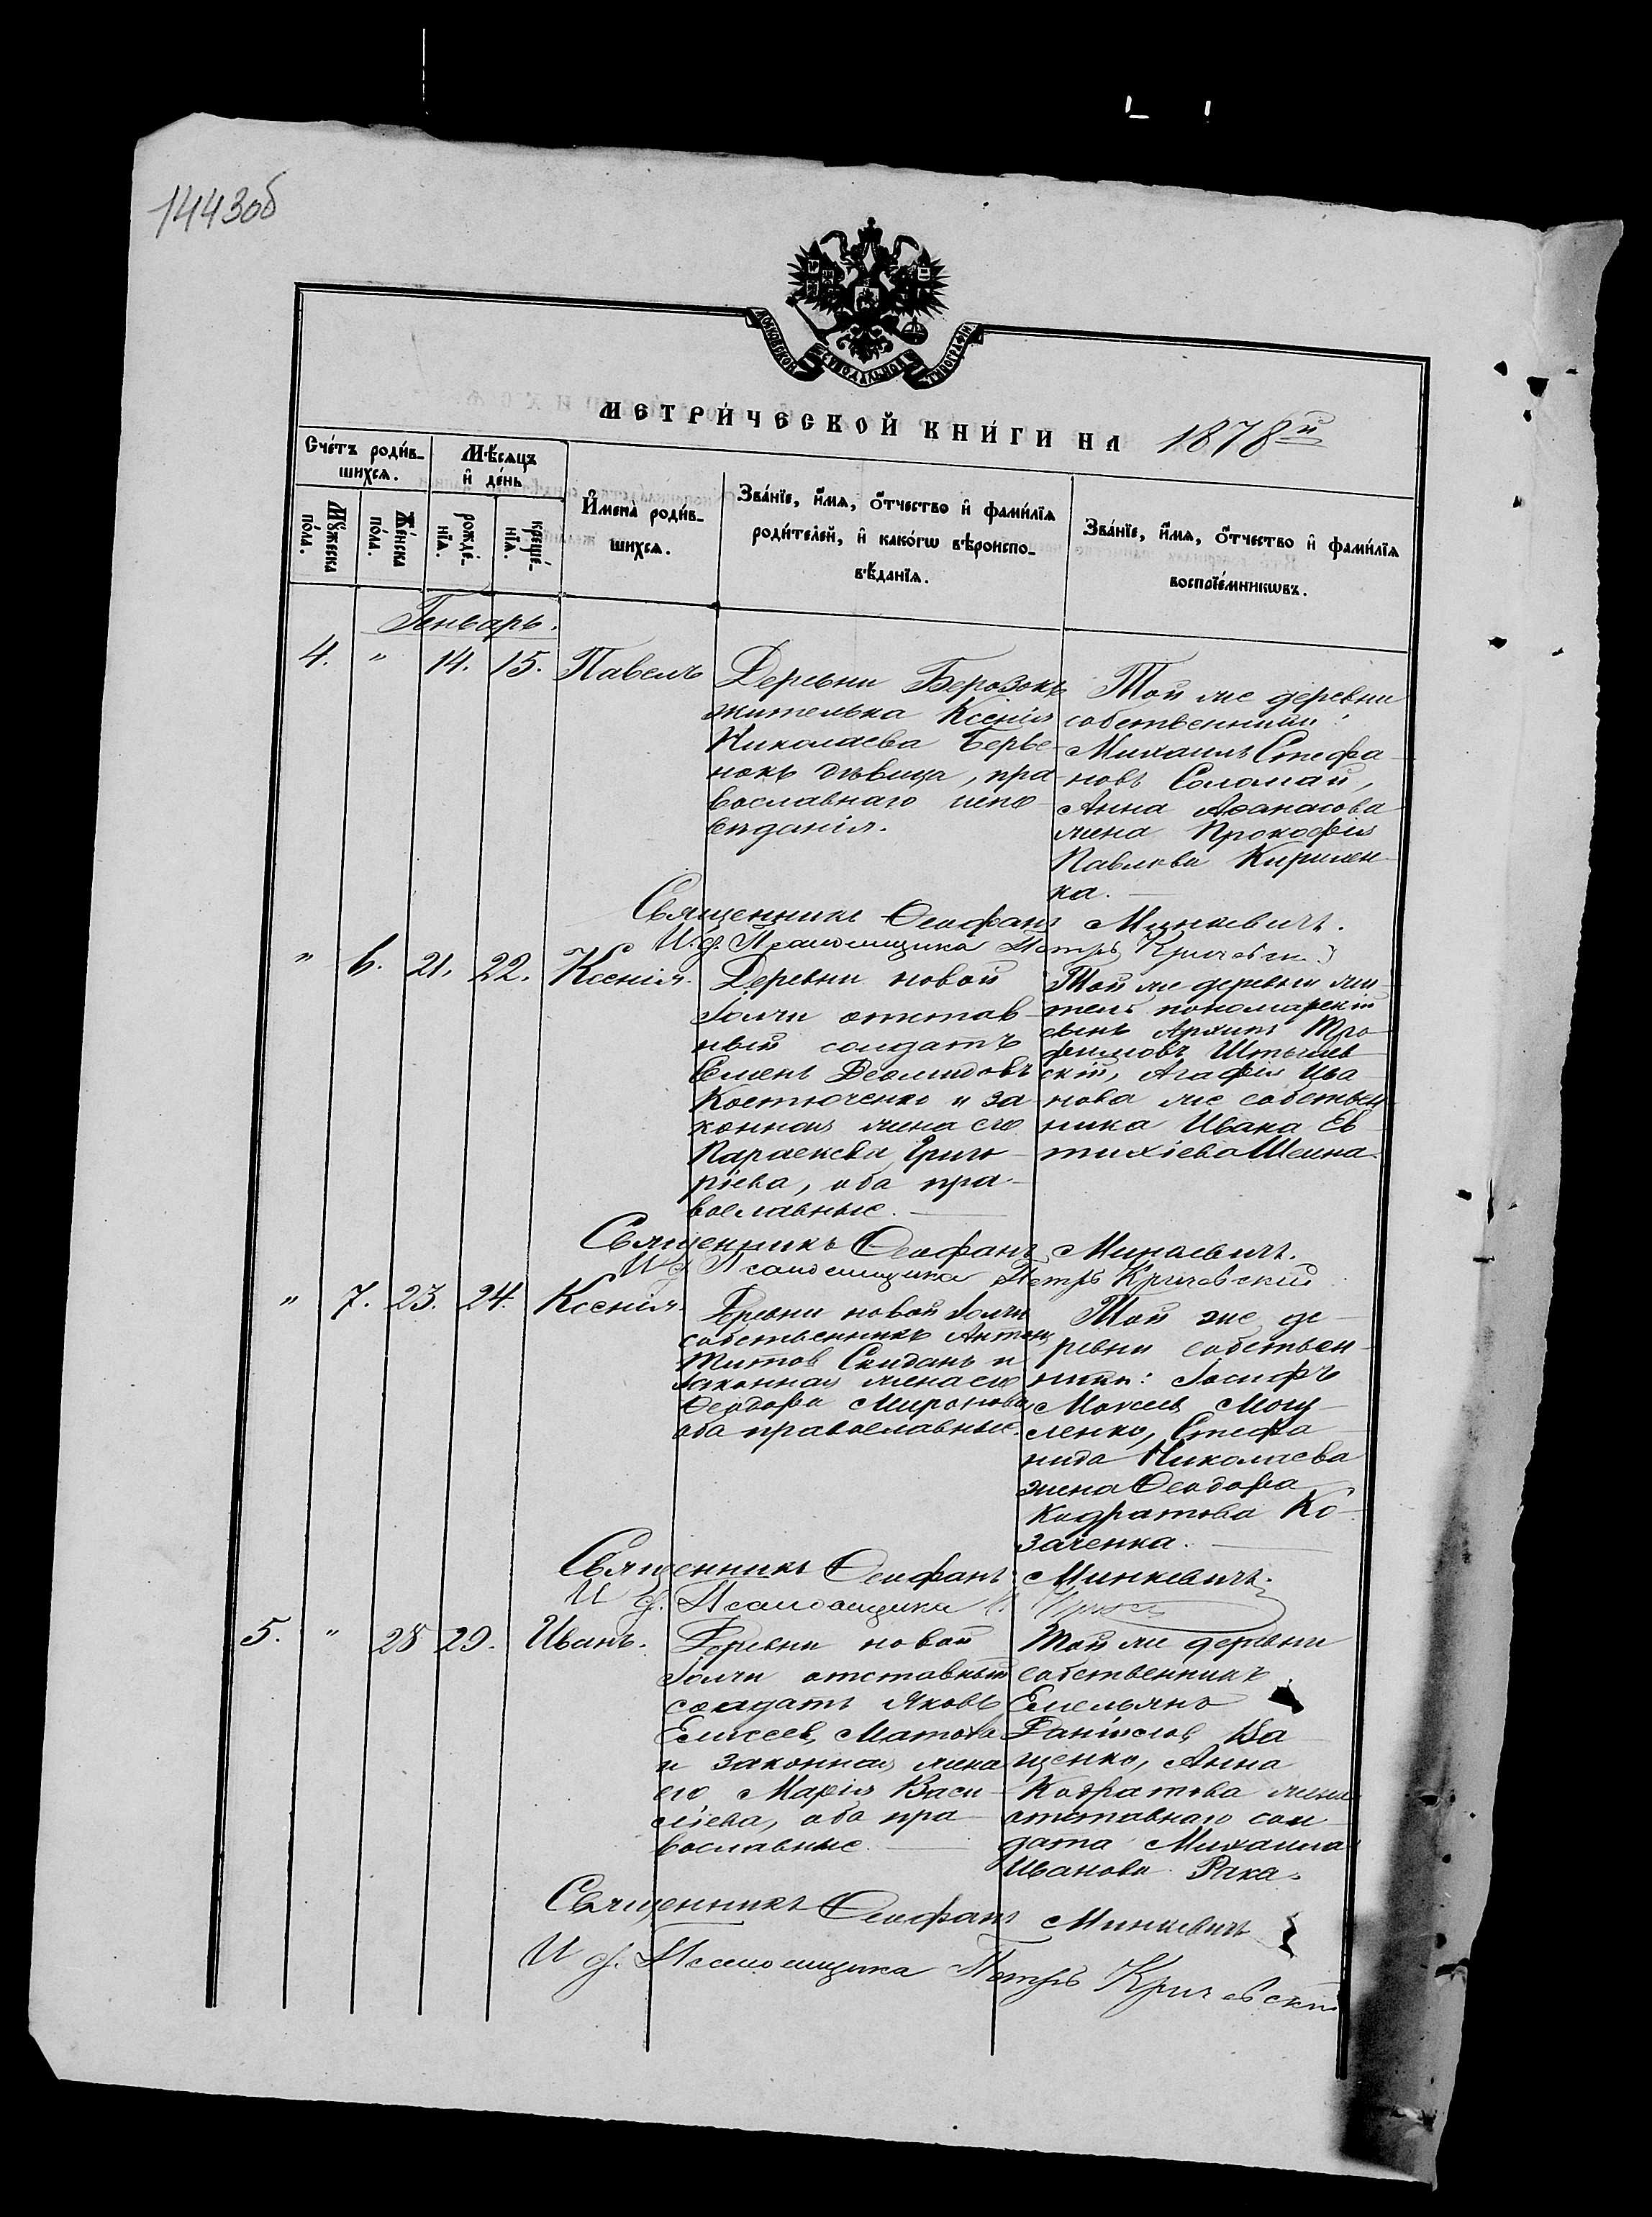 1443об
МОСКОВСКОЙ СѴНОДАЛЬНОЙ ТИПОГРАФІИ
МЕТРИ́ЧЕСКОЙ КНИ́ГИ НА 1878й
Сче́тъ роди́в-
шихсѧ.
Мѣ́сѧцъ
и҆ де́нь
Мꙋ́жеска
по́ла.
Же́нска
по́ла.
рожде́-
нїѧ.
креще́-
нїѧ.
И҆мена̀ роди́в-
шихсѧ.
Зва́нїе, и҆́мѧ, ѻ҆́тчество и҆ фами́лїѧ
роди́телей, и҆ како́гѡ вѣроиспо-
вѣ́данїѧ.
Зва́нїе, и҆́мѧ, ѻ҆́тчество и҆ фами́лїѧ
воспрїе́мникѡвъ.
Генварь.
4. " 14. 15. Павелъ
Деревни Берозокъ
жителька Ксенія
Николаева Берве-
нокъ дѣвица, пра-
вославнаго испо-
вѣданія.
Той же деревни
собственники:
Михаилъ Стефа-
новъ Соломай,
Анна Афанасова
жена Прокофія
Павлова Кирилен-
ка.
Священникъ Ѳеофанъ Минкевичъ.
И. д. Псаломщика Петръ Кричевскій
" 6. 21. 22. Ксенія.
Деревни новой
Голчи отстав-
ный солдатъ
Семенъ Деомидовъ
Костюченко и за-
конная жена его
Параскева Григо-
ріева, оба пра-
вославные.
Той же деревни жи-
тель пономарскій
сынъ Архипъ Тро-
фимовъ
скій, Агафія Ива-
нова же собствен-
ника Ивана Ев-
тихіева Шеина.
Священникъ Ѳеофанъ Минкевичъ.
И д Псаломщика Петръ Кричевскій
" 7. 23. 24. Ксенія.
Деревни новой Голчи
собственникъ Антонъ
Титов Скиданъ и
законная жена его
Ѳеодора Миронова
оба православные.
Той же де-
ревни собствен-
ники: Іосифъ
Могу-
ленко, Стефа-
нида Николаева
жена Ѳеодора
Кодратова Ко-
заченка.
Священникъ Ѳеофанъ Минкевичъ.
И д. Псаломщика
5. " 28 29. Иванъ.
Деревни новой
Голчи отставный
солдатъ Яковъ
Елисеев, Матова
и законная жена
его Марія Васи-
ліева, оба пра-
вославные.
Той же деревни
собственникъ
Емельянъ
Даніилов, Ва-
щенко, Анна
Кодратова жена
отставнаго сол-
дата Михаила
Иванова Рака.
Священникъ Ѳеофанъ Минкевичъ
И д. Псаломщика Петръ Кричевскій